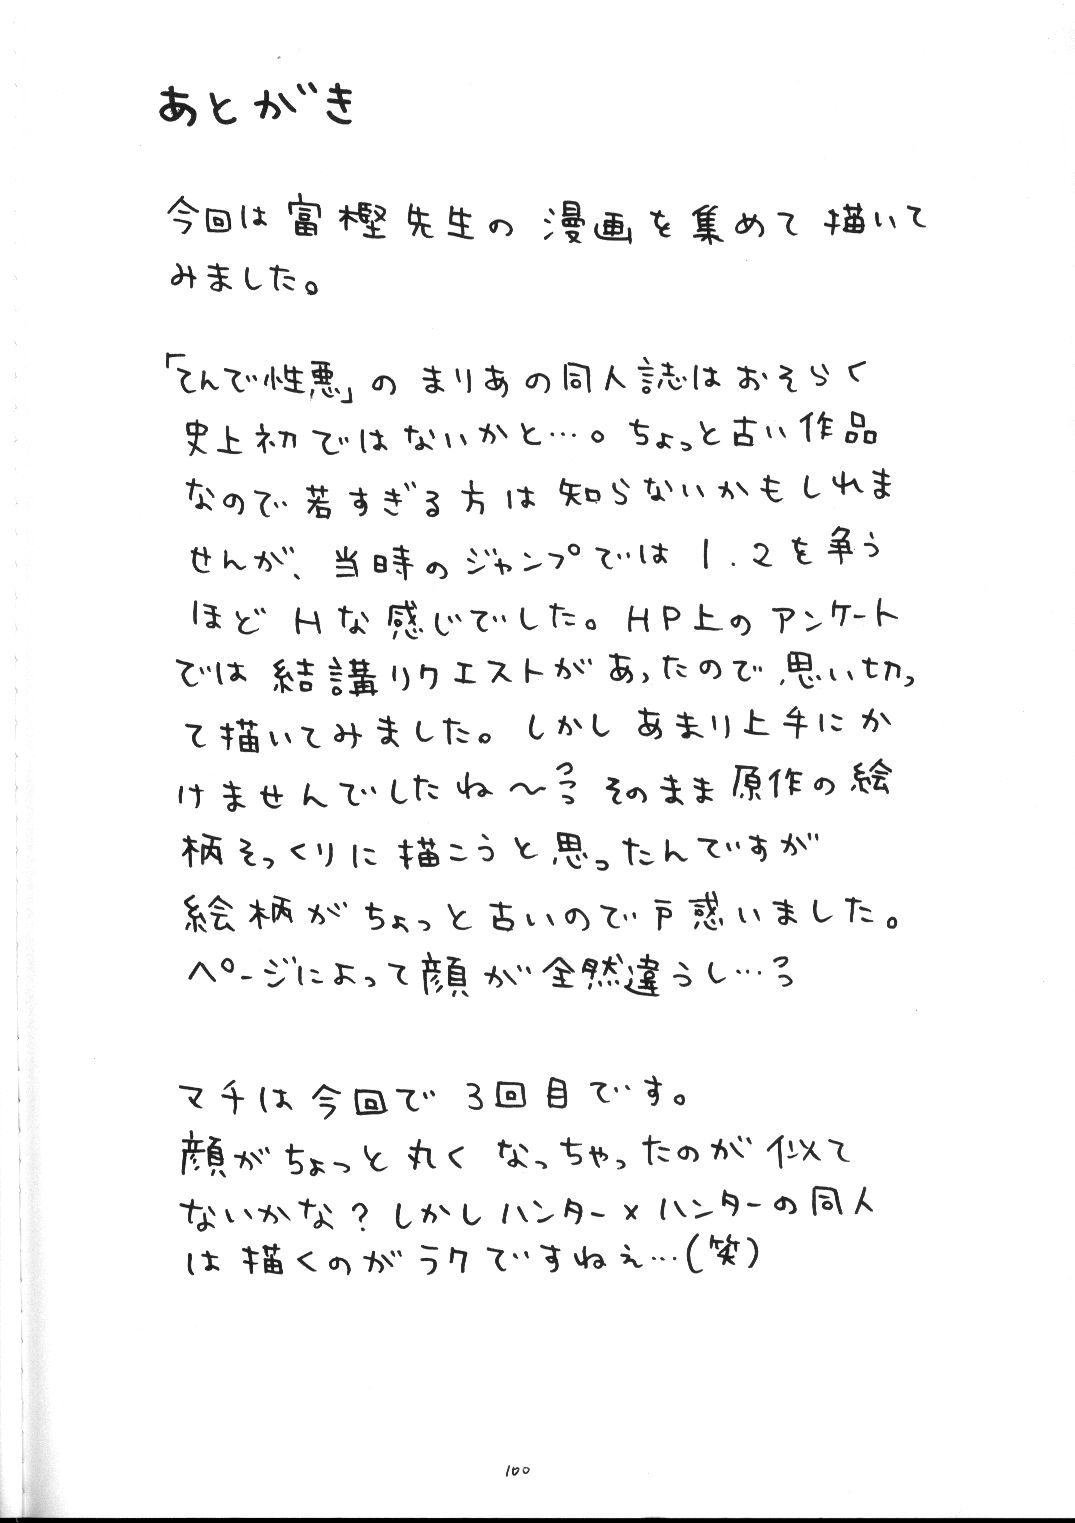 あとがき
今回は富樫先生の漫画を集めて描いて
みました。
「てんで性悪」のまりあの同人誌はおそらく
史上初ではないかと…。ちょっと古い作品
なので若すぎる方は知らないかもしれま
せんが、当時のジャンプでは1.2を争う
ほどHな感じでした。HP上のアンケート
では結講リクエストがあったので思い切っ
て描いてみました。しかしあまり上手にか
けませんでしたね〜っっ そのまま原作の絵
柄そっくりに描こうと思ったんですが
絵柄がちょっと古いので戸惑いました。
ページによって顔が全然違うし…っっ
マチは今回で3回目です。
顔がちょっと丸くなっちゃったのが似て
ないかな?しかしハンター×ハンターの同人
は描くのがラクですねぇ…(笑)
100